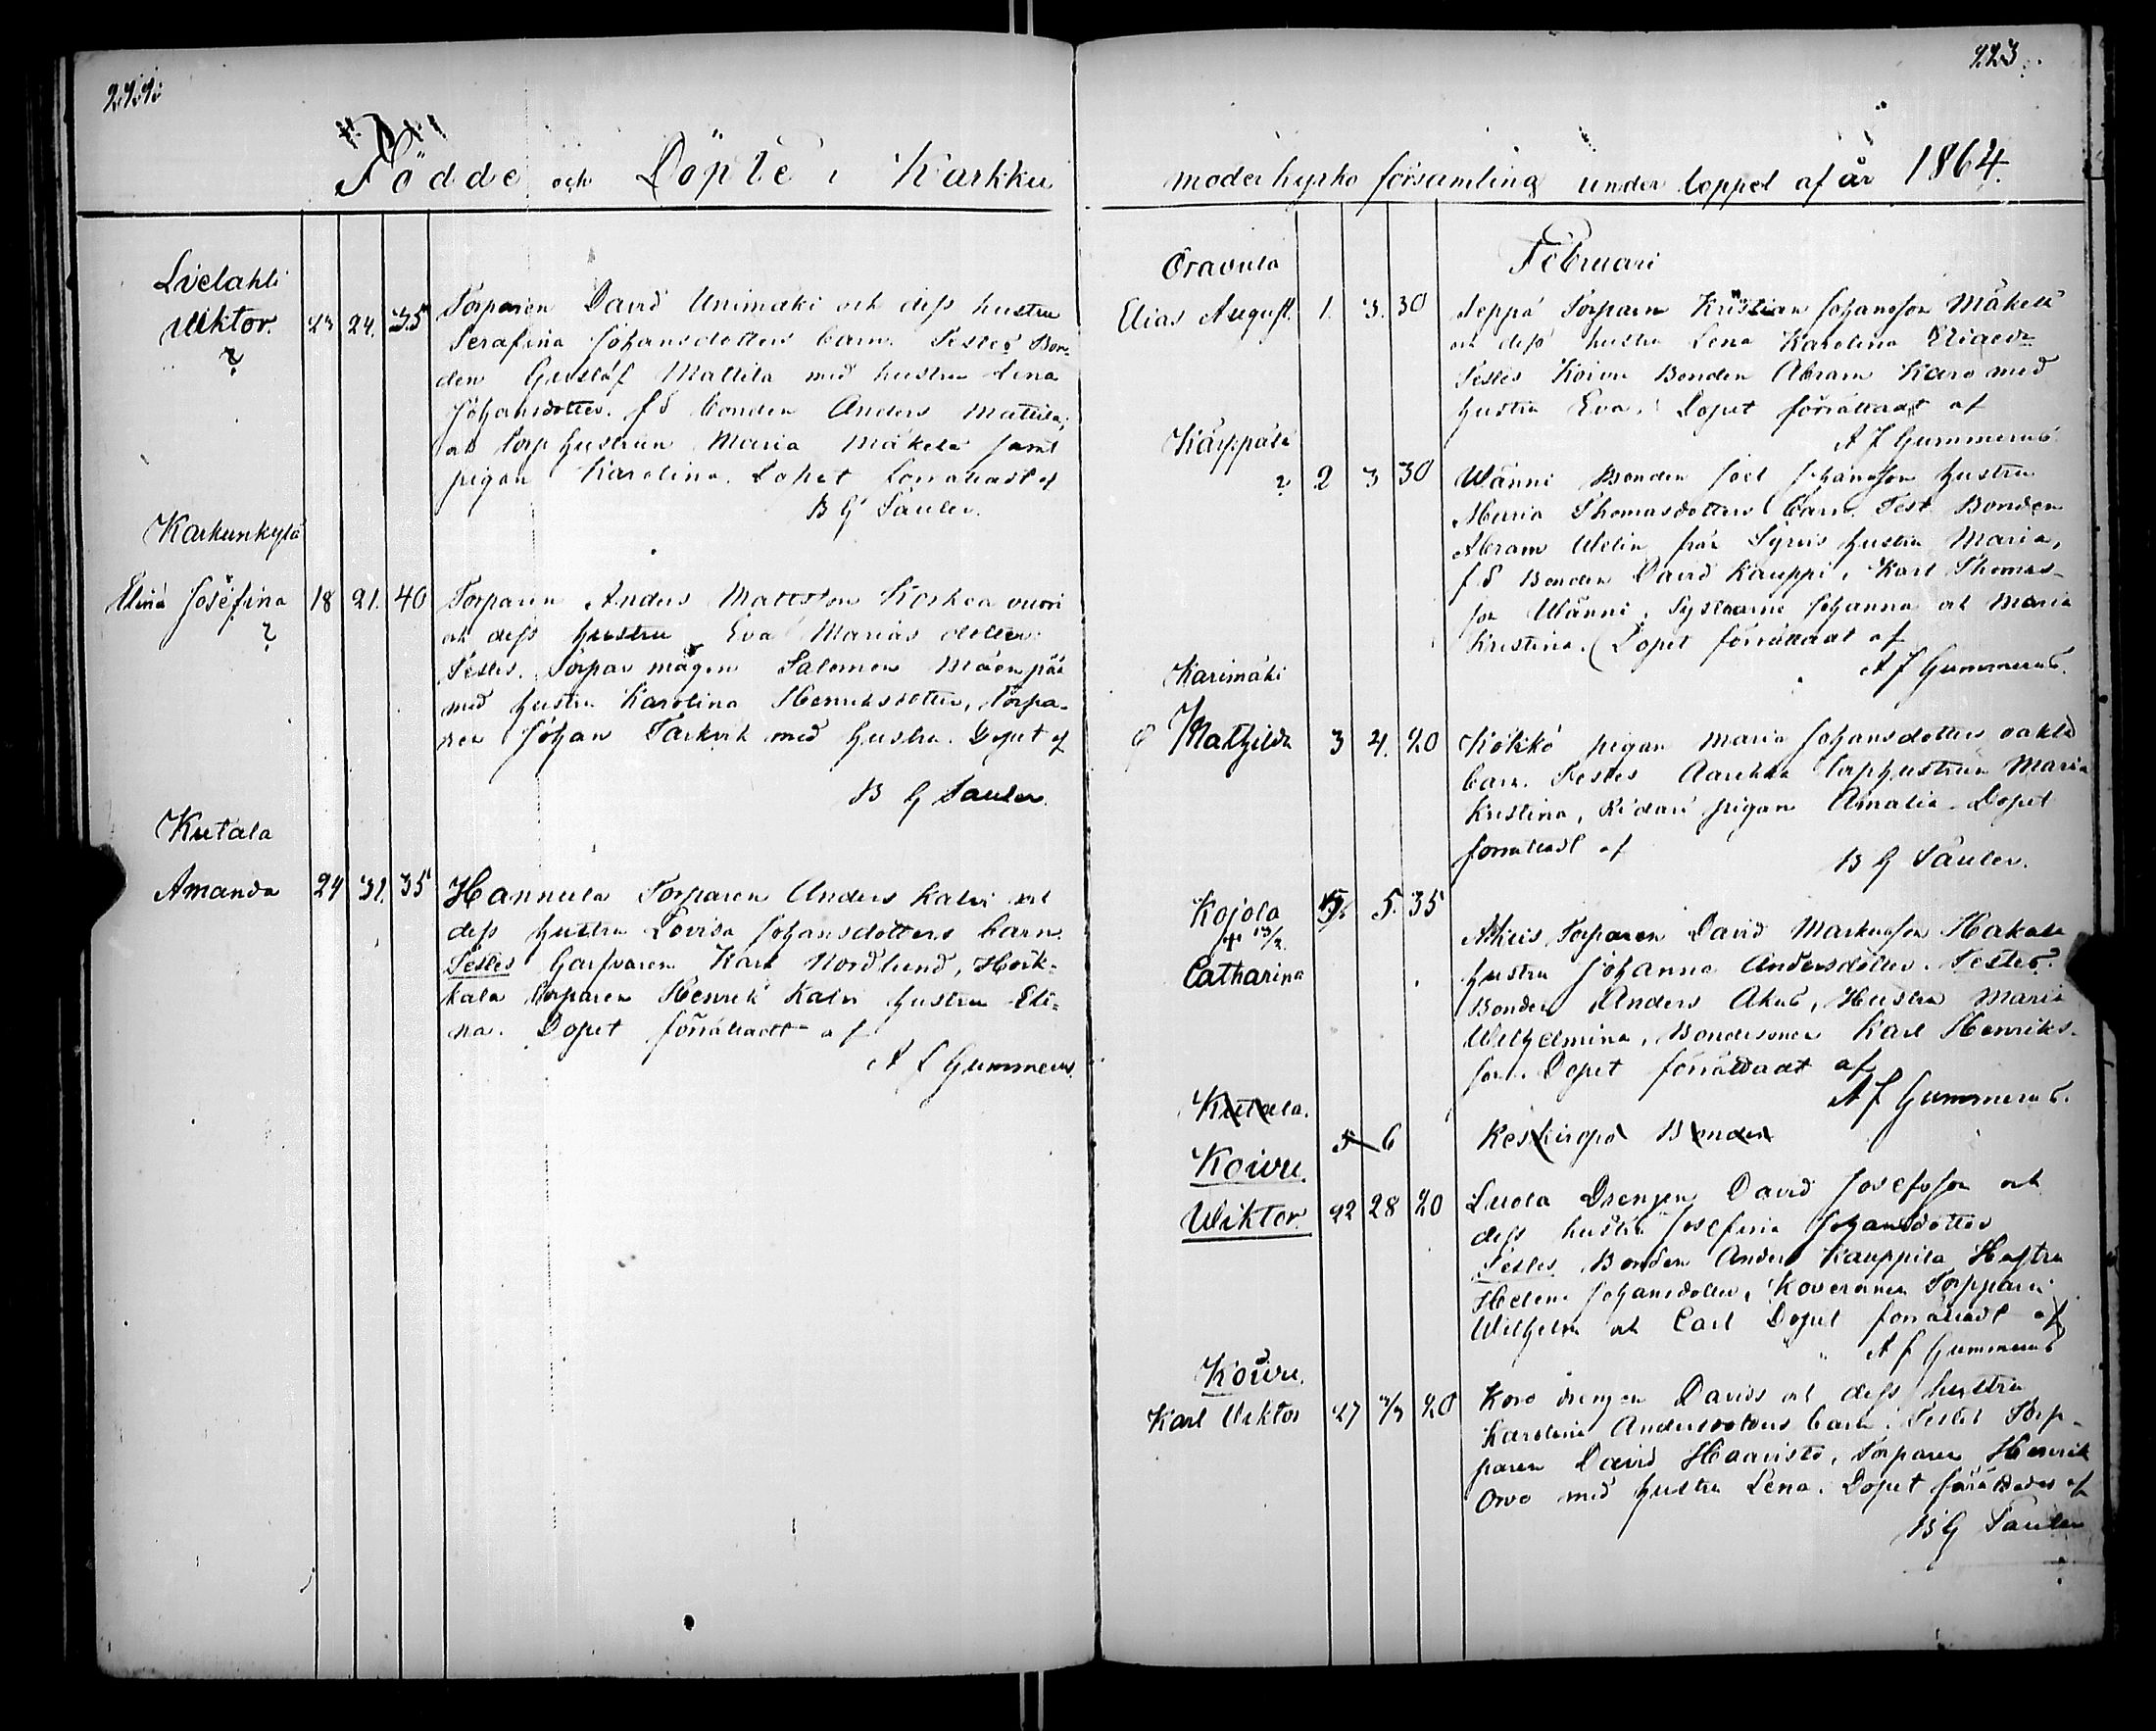 222.
Födde och Döpte i Karkku
Livelahti
Wiktor. 23 24. 35 Torparen David Unimäki och dess hustru
?
Serafina Johansdotters barn. Testes Bon-
den Gustaf Mattila med hustru Lina
Johansdotter. f S bonden Anders Mattila,
och torp hustrun Maria Mäkelä samt
pigan Karolina. Dopet förrättadt af
B G Sauler.
Karkunkylä
Elina Josefina 18 21. 40 Torparen Anders Mattsson Koskenvuori
?
och dess hustru Eva Marias dotter.
Testes. Torpar mågen Salomon Mäenpää
med hustru Karolina Henriksdotter, torpa-
ren Johan Tarkvik med hustru. Dopet af
B G Sauler.
Kutala
Amanda 24 31. 35 Hannula Torparen Anders Kalvi och
dess hustru Lovisa Johansdotters barn.
Testes Garfvaren Karl Nordlund, Hork-
kala torparen Henrik Kalvi hustru Eli-
na. Dopet förrättadt af
A F Gummerus.
223.
moderkyrko församling under loppet af år 1864.
Februari
Oravula
Elias August. 1. 3. 30 Seppä Torparn Kristian Johansson Mäkelä
och dess hustru Lena Karolina
Testes Koivu Bonden Abram Karo med
hustru Eva. Dopet förrättadt af
A F Gummerus.
Kärppälä
? 2 3 30 Wänni Bonden Joel Johansson hustru
Maria Thomasdotters barn. Test. Bonden
Abram Welin från Syrvis hustru Maria,
f S Bonden David Kauppi, Karl Thomas-
son Wänni, Systrarne Johanna och Maria
Kristina. Dopet förrättadt af
A F Gummerus.
Karimäki
Mathilda 3 4. 20 Kökkö pigan Maria Johansdotters oäkta
barn. Testes torphustrun Maria
Kristina, Ridari pigan Amalia. Dopet
förrättadt af
B G Sauler.
Kojola 5. 5. 35
+ 13/2
Catharina
Akus Torparen David Markusson Hakala
hustru Johanna Andersdotter. Testes.
Bonden Anders Akus, Hustru Maria
Wilhelmina, Bondesonen Karl Henriks-
son. Dopet förrättadt af
A F Gummerus.
Kutala.
5 6 Keskiropo Bonden
Koivu.
Wiktor. 22 28 20 Luola Drengen David Josefsson och
dess hustru Josefina Johansdotter
Testes Bonden Anders Kauppila Hustru
Helena Johansdotter, Torpparn
Wilhelm och Carl Dopet förrättadt af
A F Gummerus
Koivu.
Karl Viktor 27 3/3 20 Koro drengen Davids och dess hustru
Karolina Andersdotters barn. Testes Torp-
paren David Haavisto, Torparen Henrik
Orvo med hustru Lena. Dopet förrättades af
B G Sauler